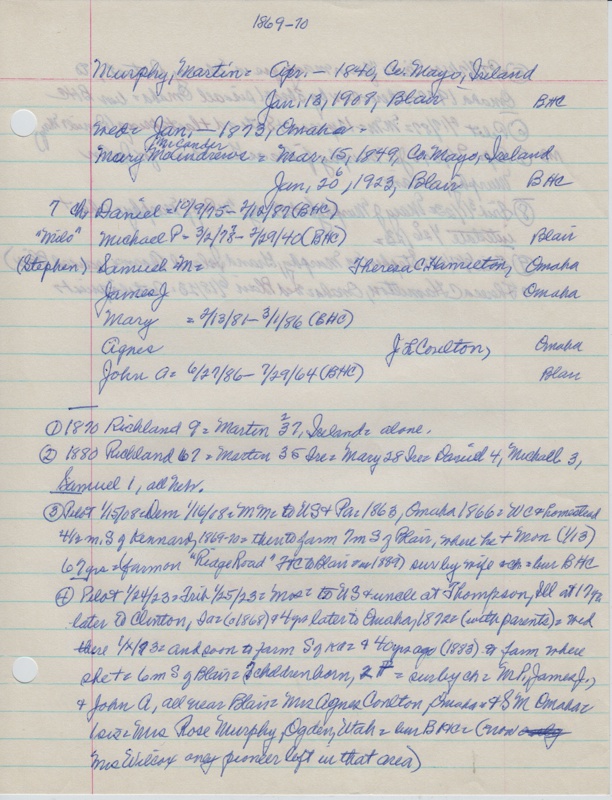 1869-70
Murphy, Martin = Apr. — 1840, Co. Mayo, Ireland
Jan. 13, 1908, Blair BHC
wed = Jan. — 1873, Omaha =
Mary McAndrews = Mar. 15, 1849, Co. Mayo, Ireland
Jan. 20, 1923, Blair BHC
7 ch Daniel = 10/9/75 - 2/12/87 (BHC)
"Milo" Michael P = 3/2/78 - 2/29/40 (BHC) Blair
(Stephen) Samuel M = Theresa C. Hamilton, Omaha
James J Omaha
Mary = 2/13/81 - 3/1/86 (BHC)
Agnes J. L. Coulton, Omaha
John A = 6/27/86 - 7/29/64 (BHC) Blair
① 1870 Richland 9 = Martin 27, Ireland = alone.
② 1880 Richland 67 = Martin 35 Ire = Mary 28 Ire = Daniel 4, Michael 3,
Samuel 1, all Neb.
③ Pilot 1/15/08 = Dem 1/16/08 = MM = to US & Pa = 1863, Omaha 1866 = WC & homestead
4½ m S of Kennard, 1869-70 = then to farm 7m S of Blair, where he + Mon (1/13)
67 yrs = farm on "Ridge Road" surv by wife bur BHC
④ Pilot 1/24/23 = Trib 1/25/23 = Mrs = to US & uncle at Thompson, Ill at 17 yr
later to Clinton, Ia = (c1868) & 4 yrs later to Omaha, 1872 = (with parents) = wed
there 1/2/73 = and soon to farm S of & 40 yrs ago (1883) to farm where
she + = 6m S of Blair = 7 children born, surv by ch = M.P., James J.,
+ John A, all near Blair = Mrs Agnes Coulton, Omaha = + S M Omaha =
Mrs Rose Murphy, Ogden, Utah = bur BHC = (now only
Mrs Wilcox only pioneer left in that area)